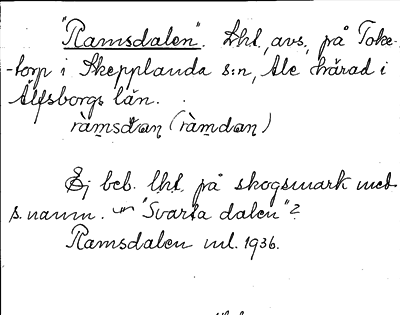 "Ramsdalen". Lhl, avs, på Toke-
-torp i Skepplanda s:n, Ale härad i
Älfsborgs län.
ràmsdan (ràmdan)
Ej beb. lhl. på skogsmark med
s. namn. "Svarta dalen"?
Ramsdalen utl. 1936.